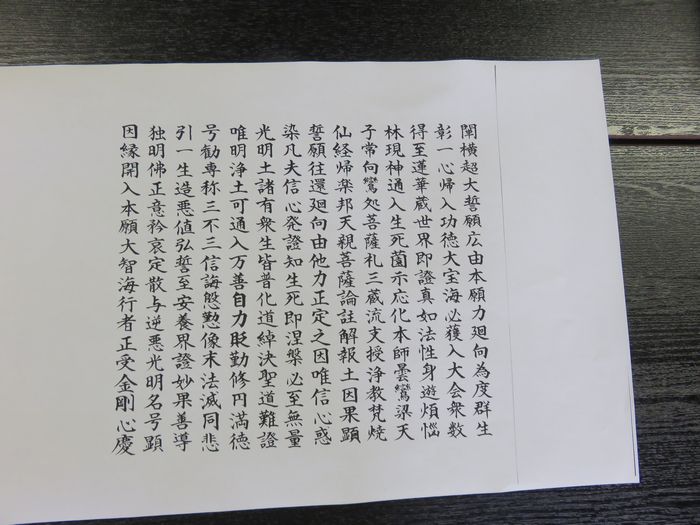 闡横超大誓願広由本願力廻向為度群生
彰一心帰入功徳大宝海必獲入大会衆数
得至蓮華蔵世界即證真如法性身遊煩悩
林現神通入生死薗示応化本師曇鸞梁天
子常向鸞処菩薩礼三蔵流支授浄教梵焼
仙経帰楽邦天親菩薩論註解報土因果顕
誓願往還廻向由他力正定之因唯信心惑
染凡夫信心発證知生死即涅槃必至無量
光明土諸有衆生皆普化道綽決聖道難證
唯明浄土可通入万善自力貶勤修円満徳
号勧専称三不三信誨慇懃像末法滅同悲
引一生造悪値弘誓至安養界證妙果善導
独明佛正意矜哀定散与逆悪光明名号顕
因縁開入本願大智海行者正受金剛心慶